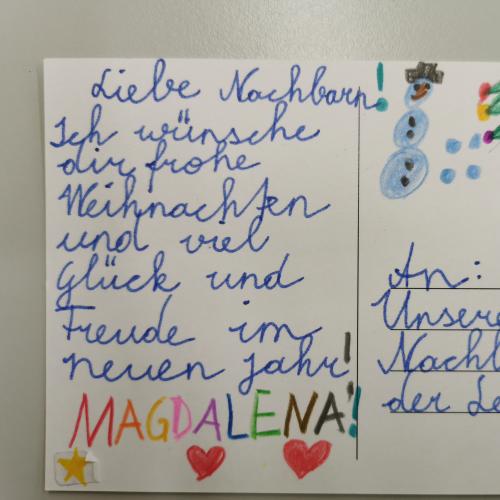 Liebe Nachbarn!
Ich wünsche
dir frohe
Weihnachten
und viel
Glück und
Freude im
neuen Jahr!
MAGDALENA!
An:
Unsere
Nachb
der Le